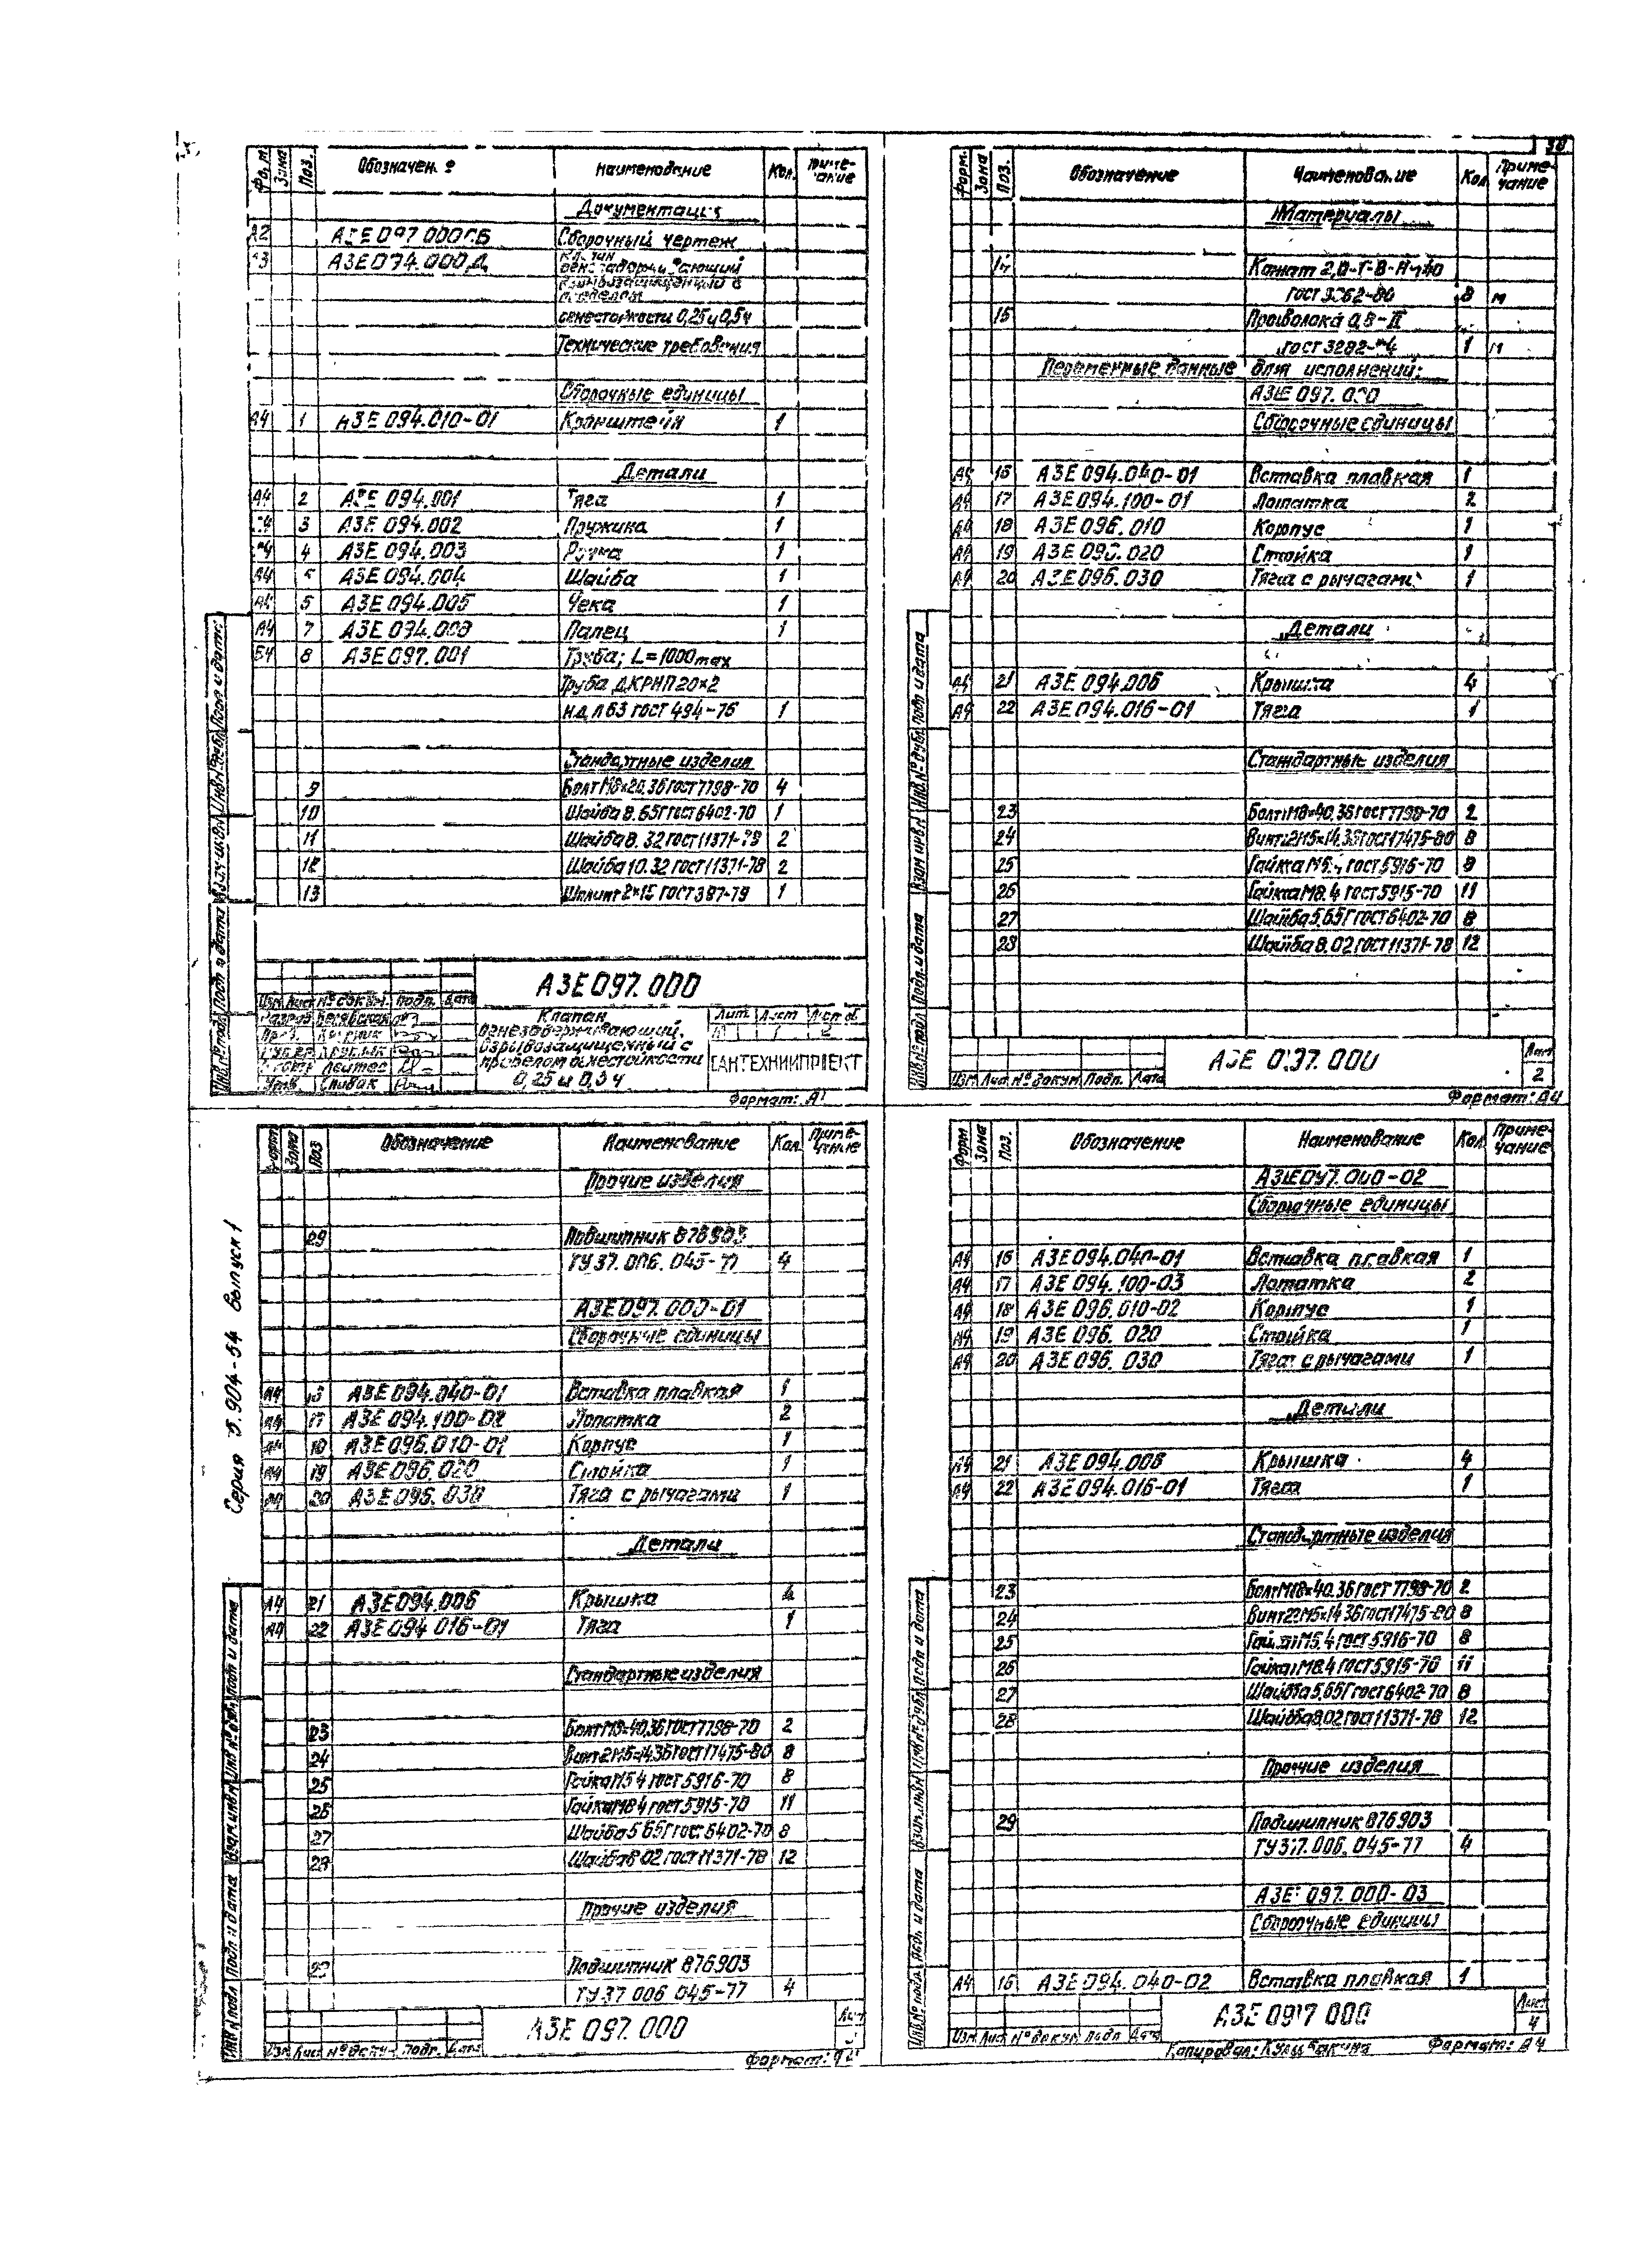 Зона Поз. Обозначен. Наименование Кол.
Документация
А3Е 097.000СБ Сборочный чертеж
А3Е 094.000Д
огнестойкости 0,25 и 0,5ч
Технические требования
Сборочные единицы
А4 1 А3Е 094.010-01 Кронштейн 1
Детали
А4 2 А3Е 094.001 Тяга 1
А4 3 А3Е 094.002 Пружина 1
А4 4 А3Е 094.003 Ручка 1
А4 А3Е 094.004 Шайба 1
А4 А3Е 094.005 Чека 1
А4 7 А3Е 094.009 Палец 1
Б4 8 А3Е 097.001 Труба; L=1000max
Труба ДКРНП 20×2
НД Л63 ГОСТ 494-76 1
Стандартные изделия
9 Болт М8×20.36 ГОСТ 7798-70 4
10 Шайба 8.65Г ГОСТ 6402-70 1
11 Шайба 8.32 ГОСТ 11371-78 2
12 Шайба 10.32 ГОСТ 11371-78 2
13 Шплинт 2×15 ГОСТ 397-79 1
А3Е 097.000
Изм. Лист № докум. Подп. Дата
Клапан
огнезадерживающий,
взрывозащищенный с
пределом огнестойкости
0,25 и 0,5 ч
Лит. Лист Листов
1
САНТЕХНИИПРОЕКТ
Спивак
Формат:
38
Форм. Зона Поз. Обозначение Наименование Кол. Примечание
Материалы
14 Канат 2,0-Г-В-Н-140
ГОСТ 3062-80 8 м
15 Проволока 0,8-II
ГОСТ 3282-74 1 м
Переменные данные для исполнений:
А3Е 097.000
Сборочные единицы
А4 16 А3Е 094.040-01 Вставка плавкая 1
А4 17 А3Е 094.100-01 Лопатка 2
А4 18 А3Е 096.010 Корпус 1
А4 19 А3Е 096.020 Стойка 1
А4 20 А3Е 096.030 Тяга с рычагами 1
Детали
А4 21 А3Е 094.006 Крышка 4
А4 22 А3Е 094.016-01 Тяга 1
Стандартные изделия
23 Болт М8×40.36 ГОСТ 7798-70 2
24 Винт 2М5×14.36 ГОСТ 17475-80 8
25 Гайка М5.4 ГОСТ 5916-70 8
26 Гайка М8.4 ГОСТ 5915-70 11
27 Шайба 5.65Г ГОСТ 6402-70 8
28 Шайба 8.02 ГОСТ 11371-78 12
Изм. Лист № докум. Подп. Дата
А3Е 097.000
Лист
2
Формат: А4
Серия 5.904-54 Выпуск 1
Форм. Зона Поз. Обозначение Наименование Кол. Примечание
Прочие изделия
29 Подшипник 876903
ТУ 37.006.045-77 4
А3Е 097.000-01
Сборочные единицы
А4 16 А3Е 094.040-01 Вставка плавкая 1
А4 17 А3Е 094.100-02 Лопатка 2
А4 18 А3Е 096.010-01 Корпус 1
А4 19 А3Е 096.020 Стойка 1
А4 20 А3Е 096.030 Тяга с рычагами 1
Детали
А4 21 А3Е 094.006 Крышка 4
А4 22 А3Е 094.016-01 Тяга 1
Стандартные изделия
23 Болт М8×40.36 ГОСТ 7798-70 2
24 Винт 2М5×14.36 ГОСТ 17475-80 8
25 Гайка М5.4 ГОСТ 5916-70 8
26 Гайка М8.4 ГОСТ 5915-70 11
27 Шайба 5.65Г ГОСТ 6402-70 8
28 Шайба 8.02 ГОСТ 11371-78 12
Прочие изделия
29 Подшипник 876903
ТУ 37.006.045-77 4
Изм. Лист № докум. Подп. Дата
А3Е 097.000
Лист
Формат:
Форм. Зона Поз. Обозначение Наименование Кол. Примечание
А3Е 097.000-02
Сборочные единицы
А4 16 А3Е 094.040-01 Вставка плавкая 1
А4 17 А3Е 094.100-03 Лопатка 2
А4 18 А3Е 096.010-02 Корпус 1
А4 19 А3Е 096.020 Стойка 1
А4 20 А3Е 096.030 Тяга с рычагами 1
Детали
А4 21 А3Е 094.006 Крышка 4
А4 22 А3Е 094.016-01 Тяга 1
Стандартные изделия
23 Болт М8×40.36 ГОСТ 7798-70 2
24 Винт 2М5×14.36 ГОСТ 17475-80 8
25 Гайка М5.4 ГОСТ 5916-70 8
26 Гайка М8.4 ГОСТ 5915-70 11
27 Шайба 5.65Г ГОСТ 6402-70 8
28 Шайба 8.02 ГОСТ 11371-78 12
Прочие изделия
29 Подшипник 876903
ТУ 37.006.045-77 4
А3Е 097.000-03
Сборочные единицы
А4 16 А3Е 094.040-02 Вставка плавкая 1
Изм. Лист № докум. Подп. Дата
А3Е 097.000
Лист
4
Копировал: Формат: А4